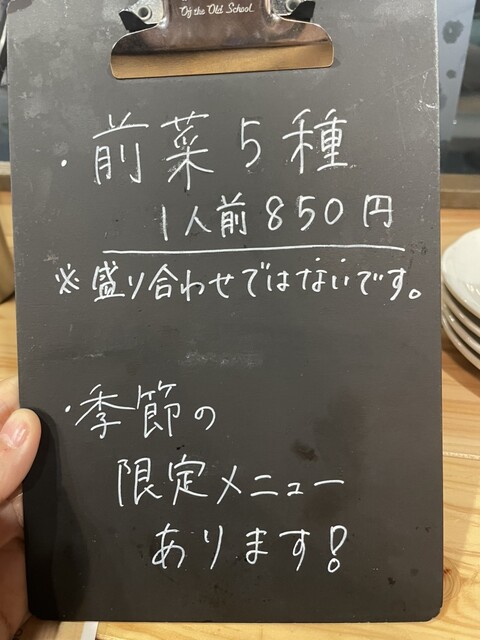 Off the Old School
・前菜5種
1人前850円
※盛り合わせではないです。
・季節の
限定メニュー
あります!